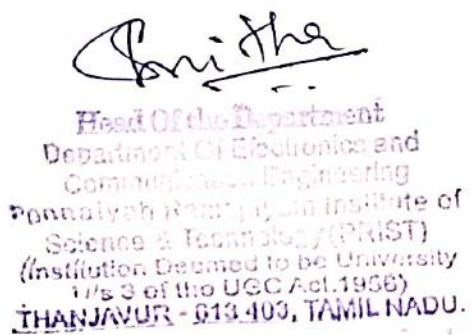 Smitha
Head Of the Department
Department Of Electronics and
Communication Engineering
Ponnaiyah Ramajayam Institute of
Science & Technology (PRIST)
(Institution Deemed to be University
U/s 3 of the UGC Act.1956)
THANJAVUR - 613 403, TAMIL NADU.